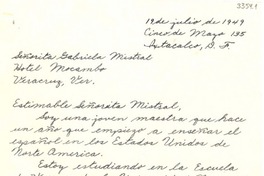 33541
19 de julio de 1949
Cinco de Mayo 135
Ixtacalco, D. F.
Señorita Gabriela Mistral
Hotel Mocambo
Veracruz, Ver.
Estimable Señorita Mistral,
Soy una joven maestra que hace
un año que empiezo a enseñar el
español en los Estados Unidos de
Norte America.
Estoy estudiando en la Escuela
de